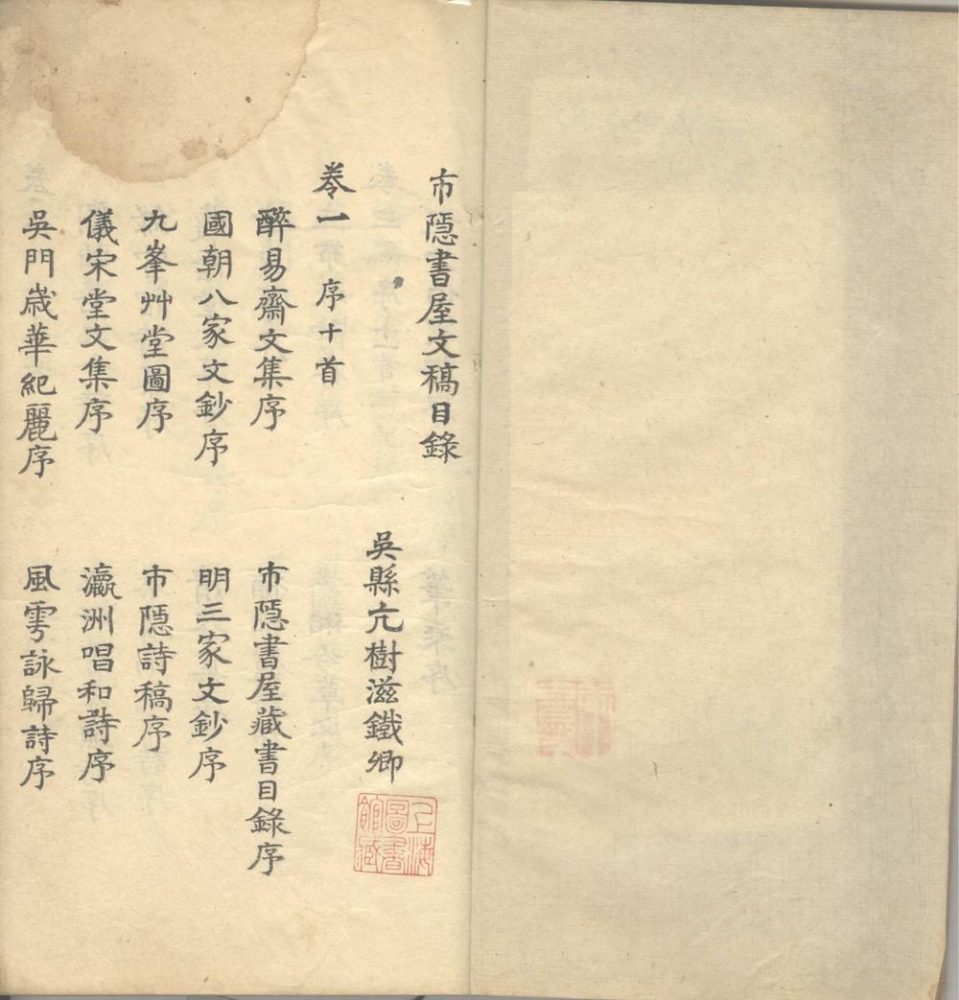 市隱書屋文稿目錄
吳縣亢樹滋鐵卿
上海圖書館藏
卷一 序十首
醉易齋文集序 市隱書屋藏書目錄序
國朝八家文鈔序 明三家文鈔序
九峯艸堂圖序 市隱詩稿序
儀宋堂文集序 瀛洲唱和詩序
吳門歲華紀麗序 風雩詠歸詩序